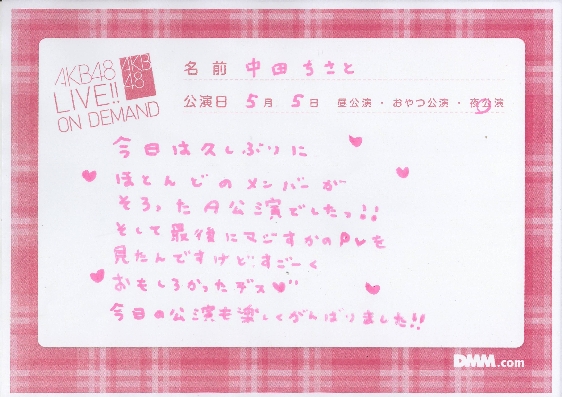 AKB48
LIVE!!
ON DEMAND
AKB
48
名前 中田ちさと
公演日 5月 5日 昼公演・おやつ公演・夜公演
今日は久しぶりに
ほとんどのメンバーが
そろったA公演でしたっ!!
そして最後にマジすかのPVを
見たんですけどすごーく
おもしろかったデス
今日の公演も楽しくがんばりました!!
DMM.com